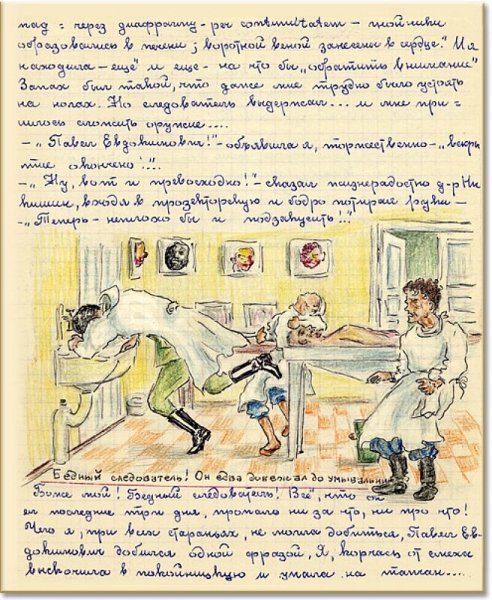 над = через диафрагму - per continuitatem - гнойники
образовались в печени; воротной веной занесены в сердце." И я
находила - ещё" и еще - на что бы „обратить внимание"
Запах был такой, что даже мне трудно было устоять
на ногах. Но следователь выдержал... и мне при =
шлось сложить оружие....
- „Павел Евдокимович!" - объявила я, торжественно - „вскры
тие окончено!"...
- „Ну, вот и превосходно!" - сказал жизнерадостно д-р Ни
кишин, входя в прозекторскую и бодро потирая руки -
- „Теперь - неплохо бы и подзакусить!"
Бедный следователь! Он едва добежал до умывальни
Боже мой! Бедный следователь! Всё, что он
ел последние три дня, пропало ни за что, ни про что!
Чего я, при всех стараньях, не могла добиться, Павел Ев-
докимович добился одной фразой. Я, корчась от смеха
выскочила в покойницкую и упала на топчан....